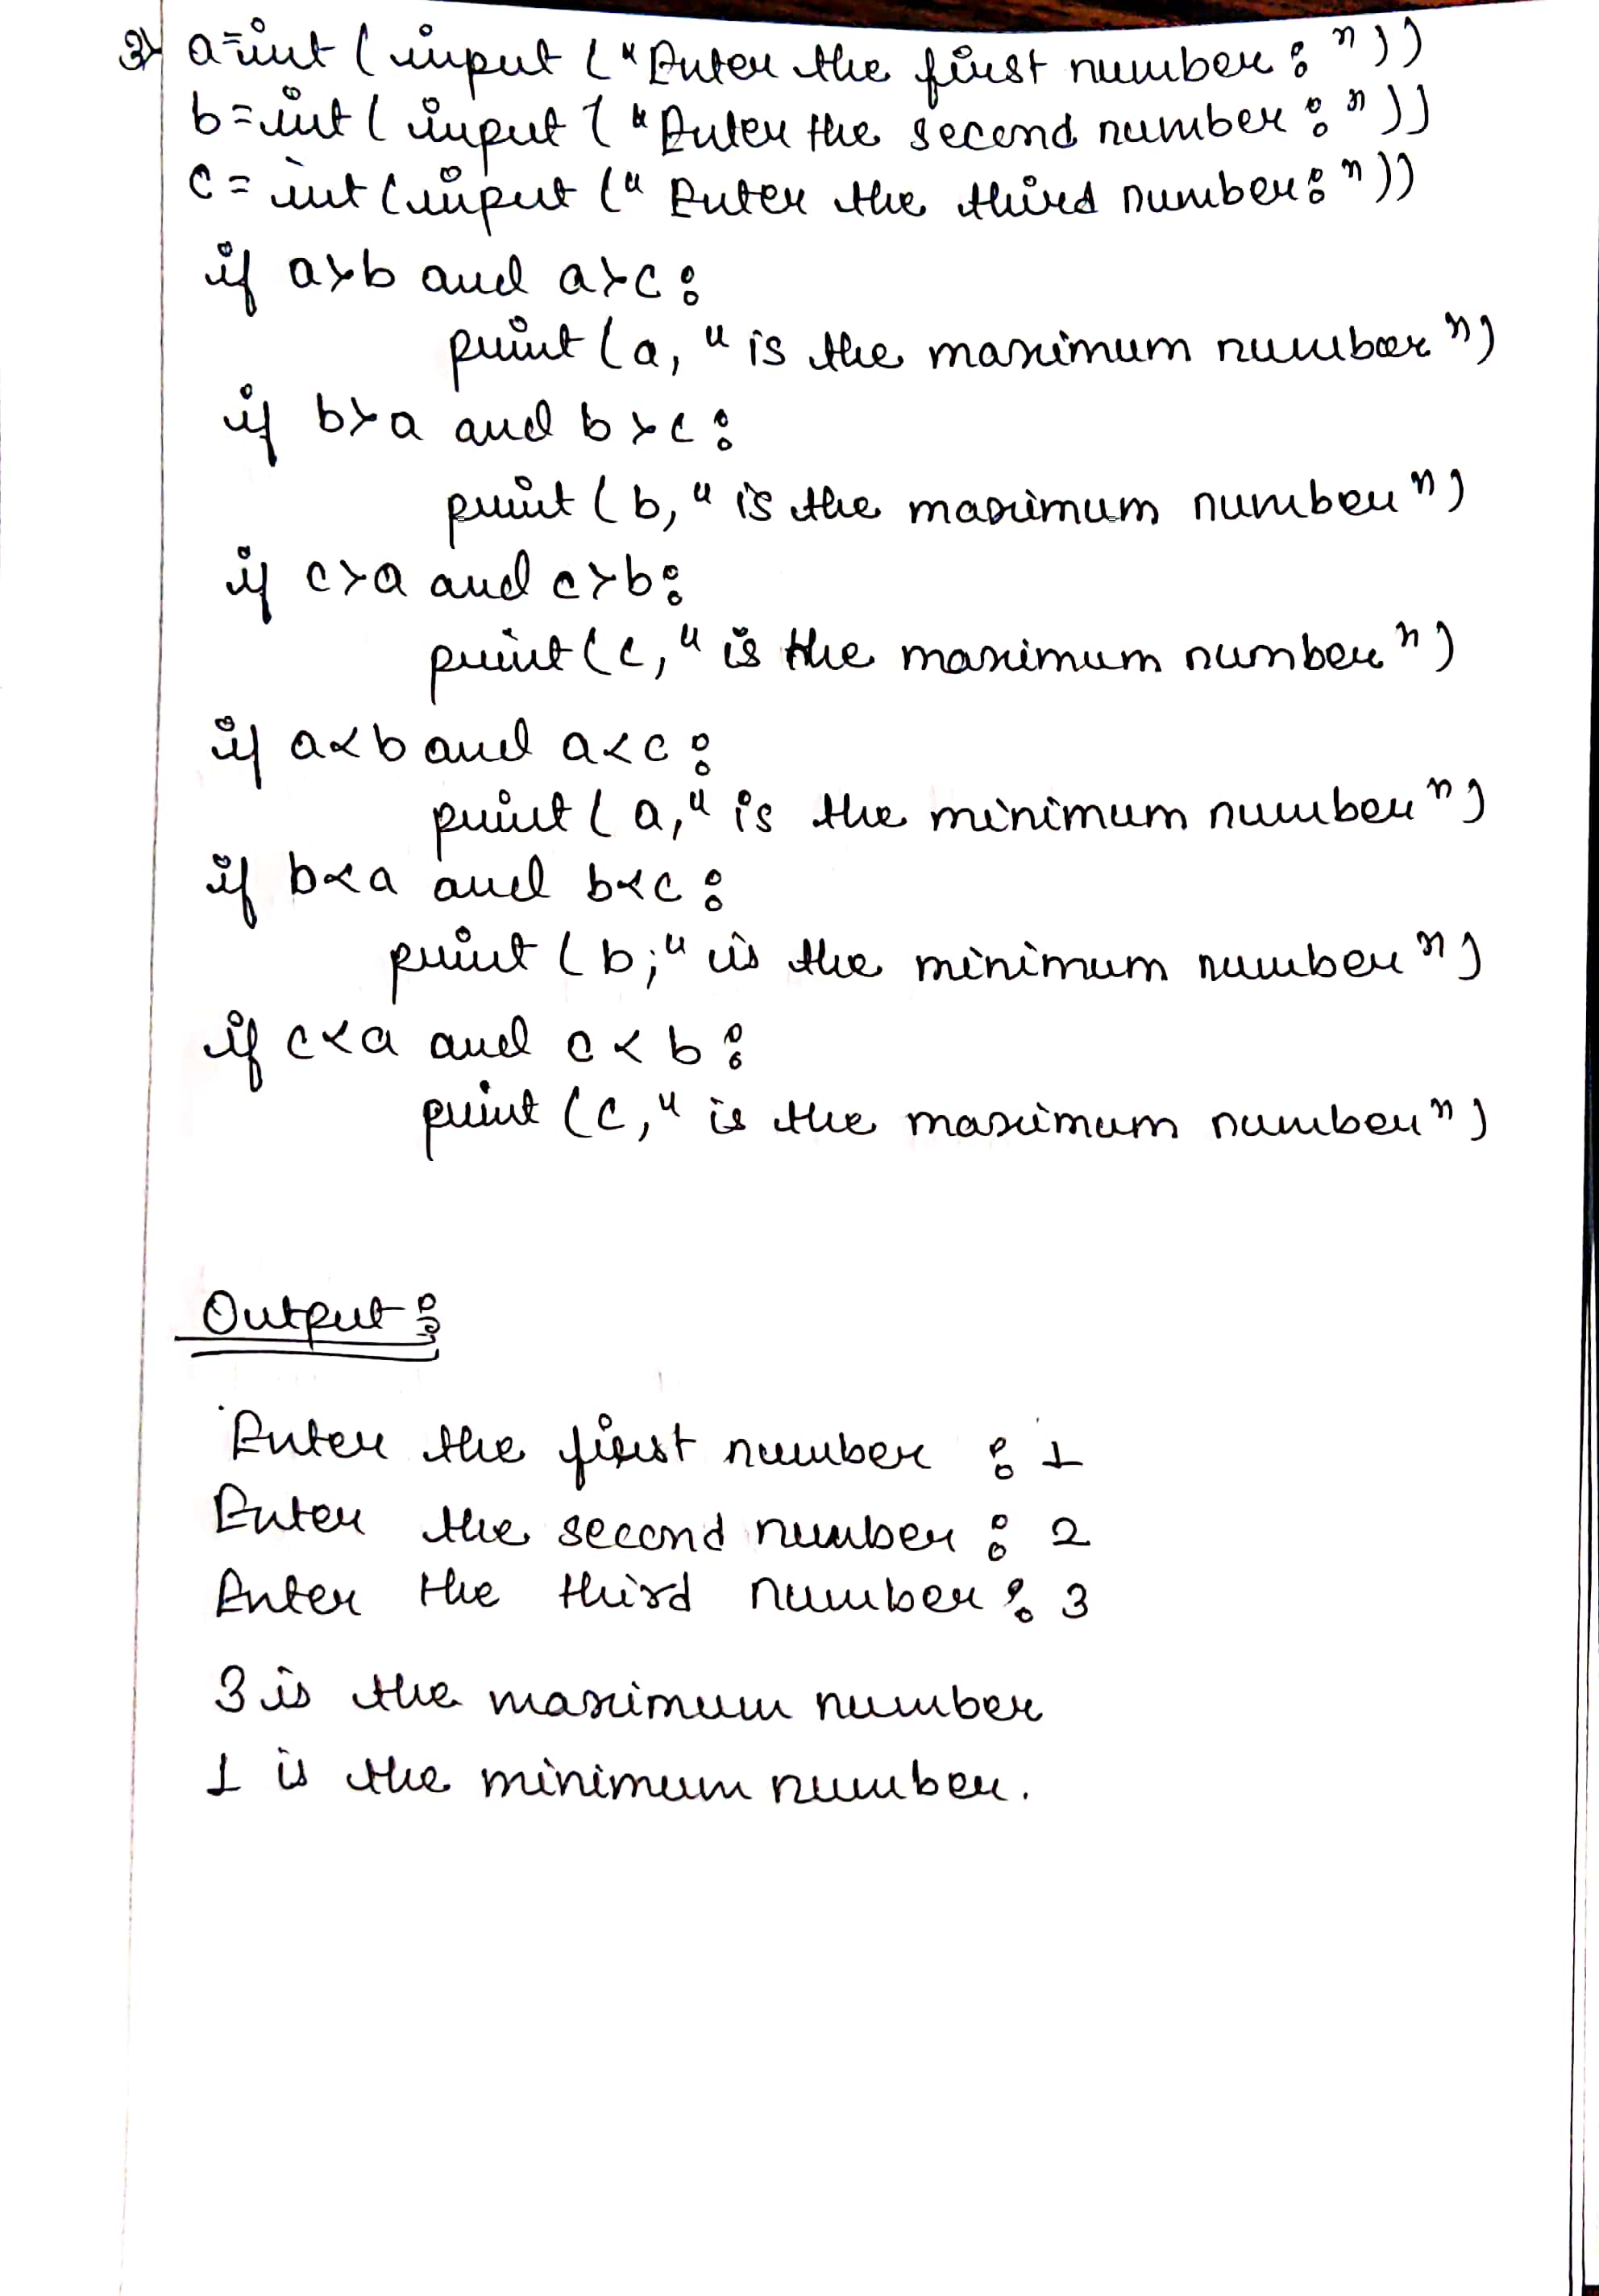 3) a=int (input ("Enter the first number : "))
b=int (input ("Enter the second number : "))
c=int (input (" Enter the third number: "))
if a>b and a>c :
print (a, " is the maximum number")
if b>a and b>c :
print (b, " is the maximum number")
if c>a and c>b:
print (c, " is the maximum number")
if a<b and a<c :
print (a, " is the minimum number")
if b<a and b<c :
print (b;" is the minimum number")
if c<a and c<b :
print (c, " is the maximum number")
Output :
Enter the first number : 1
Enter the second number : 2
Enter the third number : 3
3 is the maximum number
1 is the minimum number.